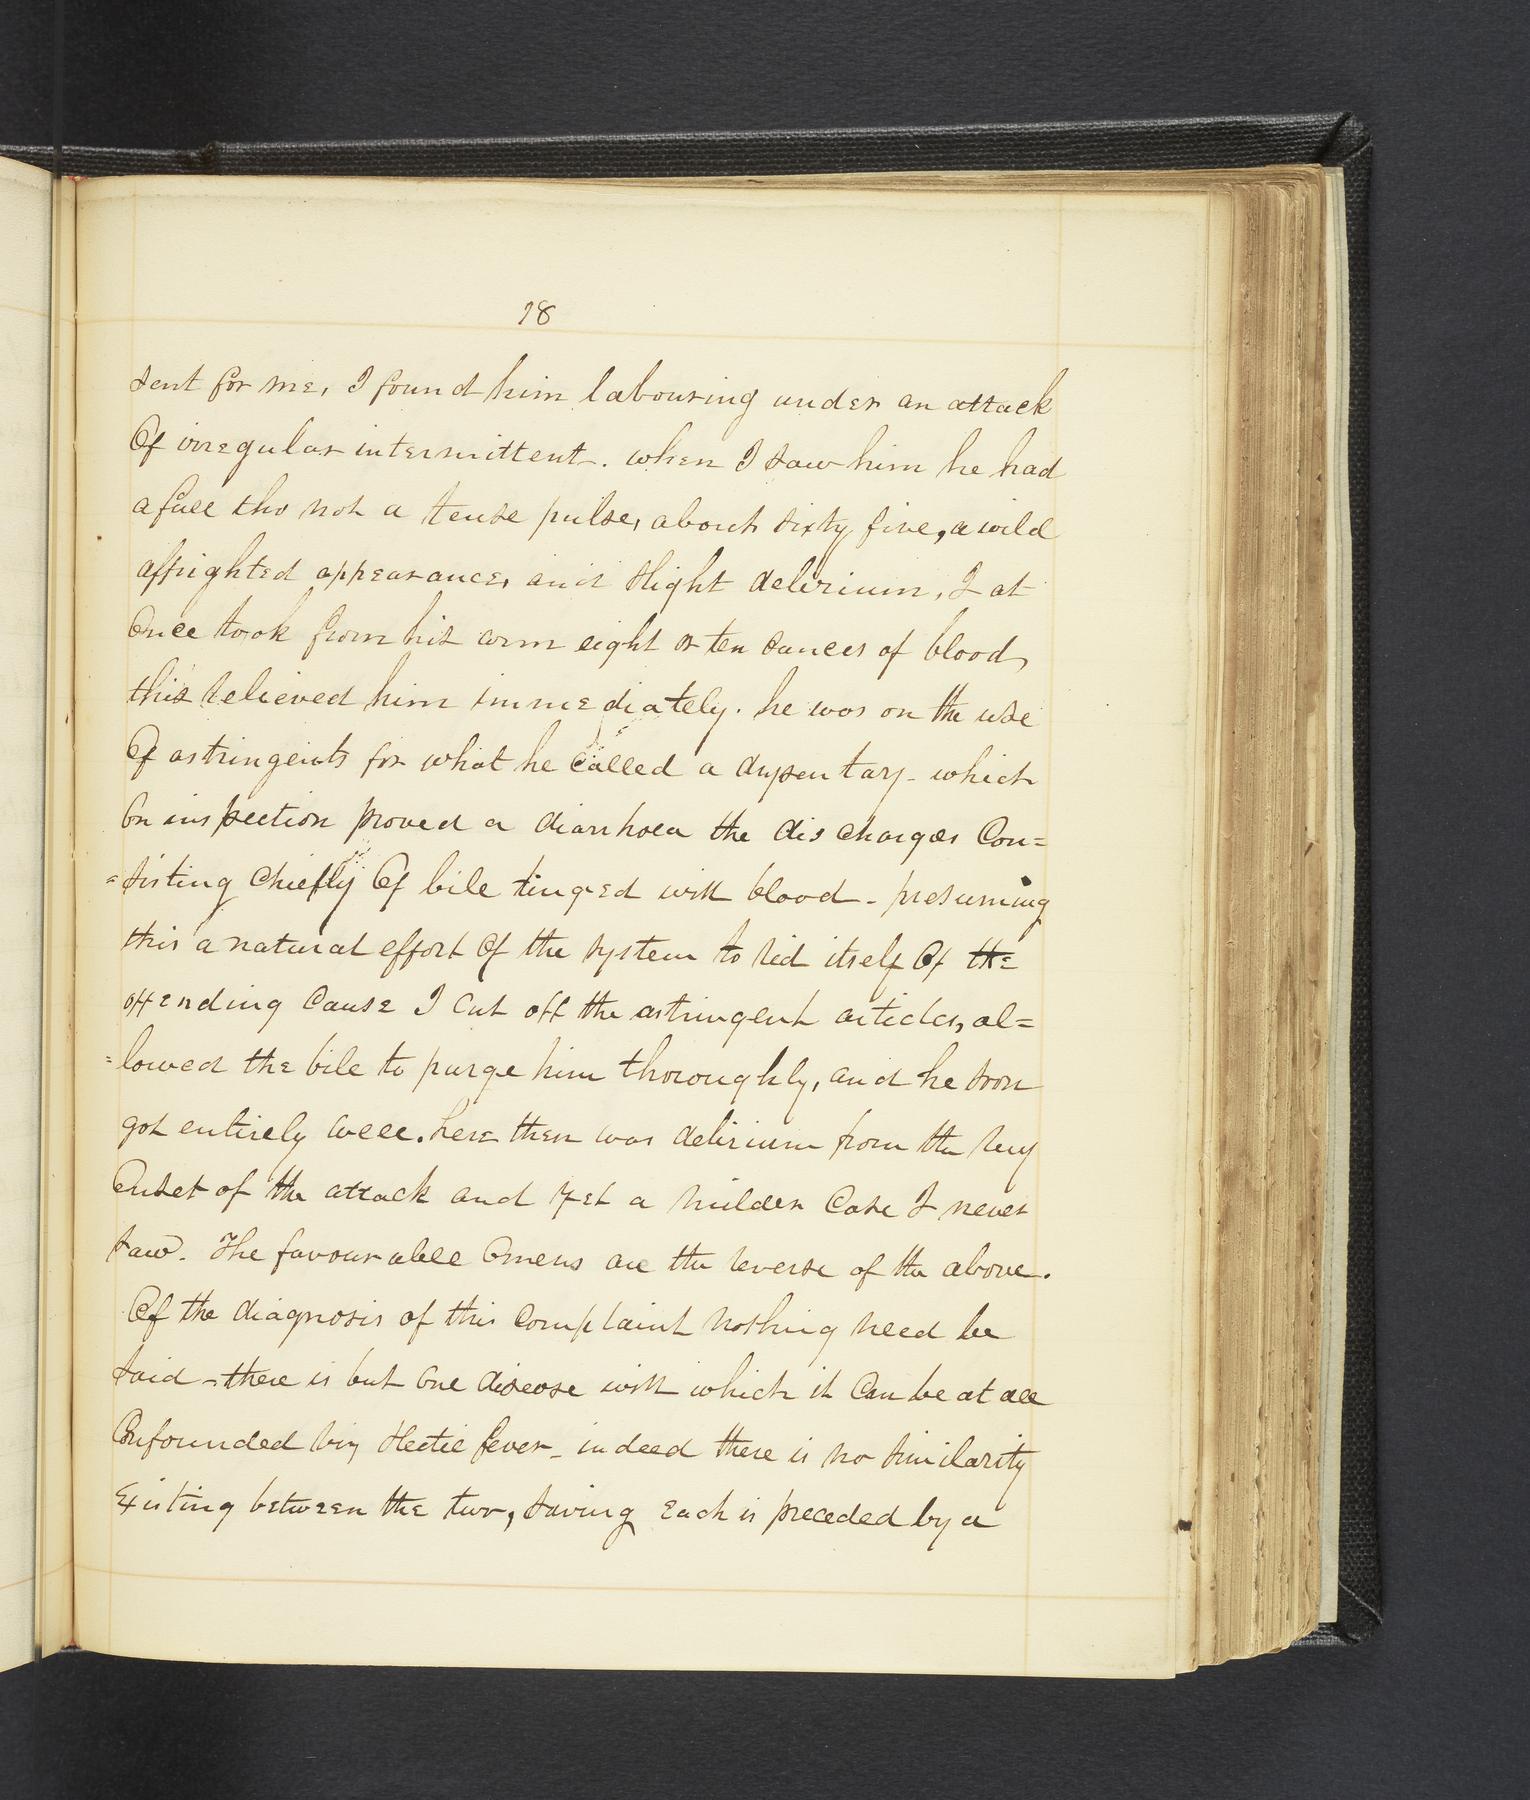 18
sent for me, I found him labouring under an attack
Of irregular intermittent. when I saw him he had
a full tho not a tense pulse, about sixty five, a wild
affrighted appearance, and slight delirium, I at
Once took from his arm eight or ten ounces of blood,
this relieved him immediately. he was on the use
Of astringents for what he called a dysentary - which
On inspection proved a diarrhoea the discharges Con=
=sisting Chiefly Of bile tinged with blood - presuming
this a natural effort Of the system to rid itself Of the
offending Cause I Cut off the astringent articles, al=
=lowed the bile to purge him thoroughly, and he soon
got entirely well. here then was delirium from the very
Onset of the attack and yet a milder Case I never
saw. The favourable Omens are the reverse of the above.
Of the diagnosis of this Complaint nothing need be
said - there is but One disease with which it Can be at all
Confounded viz Hectic fever - indeed there is no similarity
Existing between the two, saving Each is preceded by a